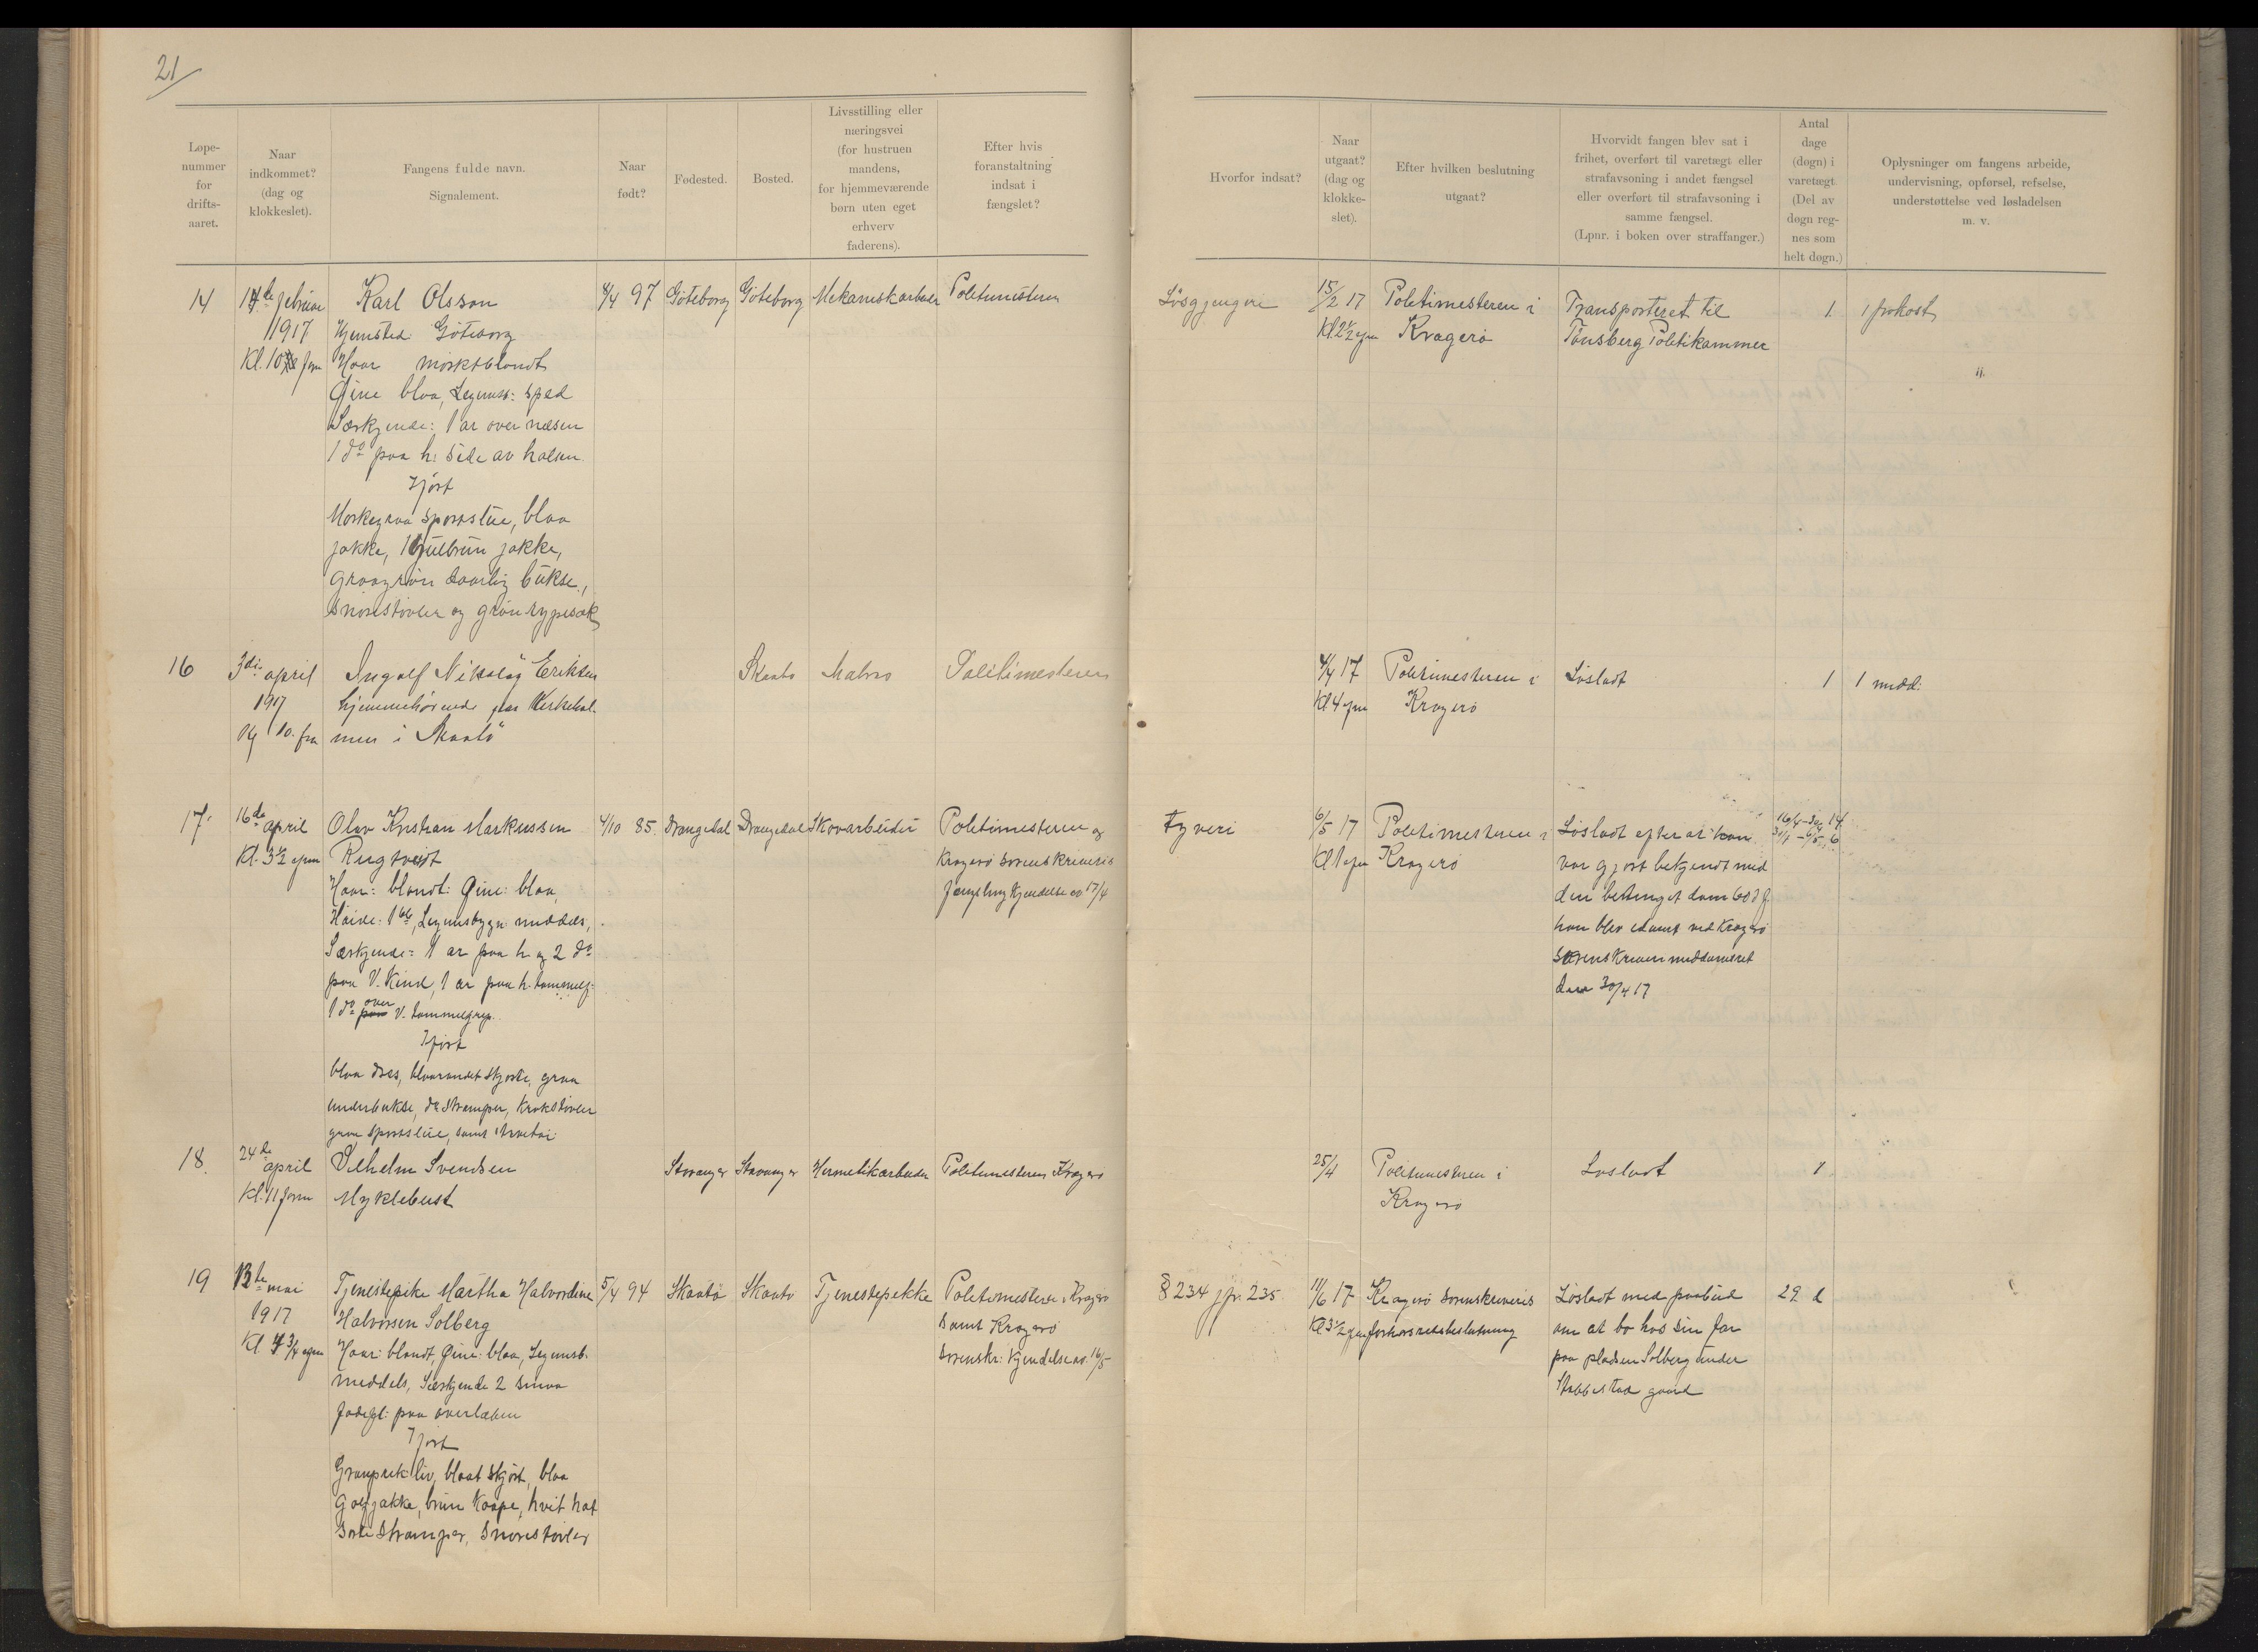 21/
Løpe-
nummer
for
drifts-
aaret.
Naar
indkommet?
(dag og
klokkeslet).
Fangens fulde navn.
Signalement.
Naar
født?
Fødested.
Bosted.
Livsstilling eller
næringsvei
(for hustruen
mandens,
for hjemmeværende
børn uten eget
erhverv
faderens).
Efter hvis
foranstaltning
indsat i
fængslet?
Hvorfor indsat?
Naar
utgaat?
(dag og
klokke-
slet).
Efter hvilken beslutning
utgaat?
Hvorvidt fangen blev sat i
frihet, overført til varetægt eller
strafavsoning i andet fængsel
eller overført til strafavsoning i
samme fængsel.
(Lpnr. i boken over straffanger.)
Antal
dage
(døgn) i
varetægt.
(Del av
døgn reg-
nes som
helt døgn.)
Oplysninger om fangens arbeide,
undervisning, opførsel, refselse,
understøttelse ved løsladelsen
m. v.
14
14de februar
1917
Kl. 10 fm
Karl Olsson
Hjemsted: Göteborg
Haar mørkblondt
Øine blaa, Legemsb: sped
Særkjende: 1 ar over næsen
1 do paa h: side av halsen.
Iført
Mørkegraa sportslue, blaa
jakke, 1 gulbrun jakke,
graagrøn daarlig bukse,
snørestøvler og grøn rypesæk
4/4 97
Göteborg
Göteborg
Mekaniskarbeider
Politimesteren
Løsgjengeri
15/2 17
Kl. 2½ efm
Politimesteren i
Kragerø
Transporteret til
Tønsberg Politikammer
1
1 frokost
16
3die april
1917
Kl 10. fm
Ingolf Nikolay Eriksen
hjemmehørende paa Kirkehol-
men i Skaatø
Skaatø
Matros
Politimesteren
4/4 17
Kl 4 efm
Politimesteren i
Kragerø
Løsladt
1
1 midd:
17.
16de april
Kl. 3½ efm
Olav Kristian Markussen
Rugtveit
Haar: blondt: Øine: blaa,
Høide: 1 Legemsbygn: middels,
Særkjende: 1 ar paa h og 2 do
paa V. Kind, 1 ar paa h. tommelf:
1 do paa over V. tommelfinger.
Iført
blaa dres, blaarandet skjorte, graa
underbukse, do strømper, krakstøvler
graa sportslue, samt
4/10 85.
Drangedal
Drangedal
Skovarbeider
Politimesteren og
Kragerø sorenskriveris
fængslingskjendelse av 17/4
Tyveri
6/5 17
Kl 1 efm
Politimesteren i
Kragerø
Løsladt efter at han
var gjort bekjendt med
den betinget dom 60 d f.
han blev idømt ved Kragerø
sorenskriveri meddomsret
den 30/4 17
16/4 - 30/4 14
30/4 - 6/5 6
18.
24de april
Kl. 11 form
Vilhelm Svendsen
Myklebust
Stavanger
Stavanger
Hermetikarbeider
Politimesteren Kragerø
25/4
Politimesteren i
Kragerø
Løsladt
1
19
13te mai
1917
Kl 4 ¾ efm
Tjenestepike Martha Halvordine
Halvorsen Solberg
Haar: blondt, Øine: blaa, Legemsb.
middels, Særkjende 2 smaa
fødefl: paa overlæben
Iført
Graaprikt liv, blaat skjørt, blaa
golfjakke, brun Kaape, hvit hat
sorte strømper, snørestøvler
5/4 94
Skaatø
Skaatø
Tjenestepikke
Politimesteren i Kragerø
samt Kragerø
Sorenskr: Kjendelse av. 16/5
§ 234 jfr. 235
11/6 17
Kl 3½ efm
Kragerø sorenskriveris
forhørsretsbeslutning
Løsladt med paabud
om at bo hos sin far
paa pladsen Solberg under
Stabbestad gaard
29 d